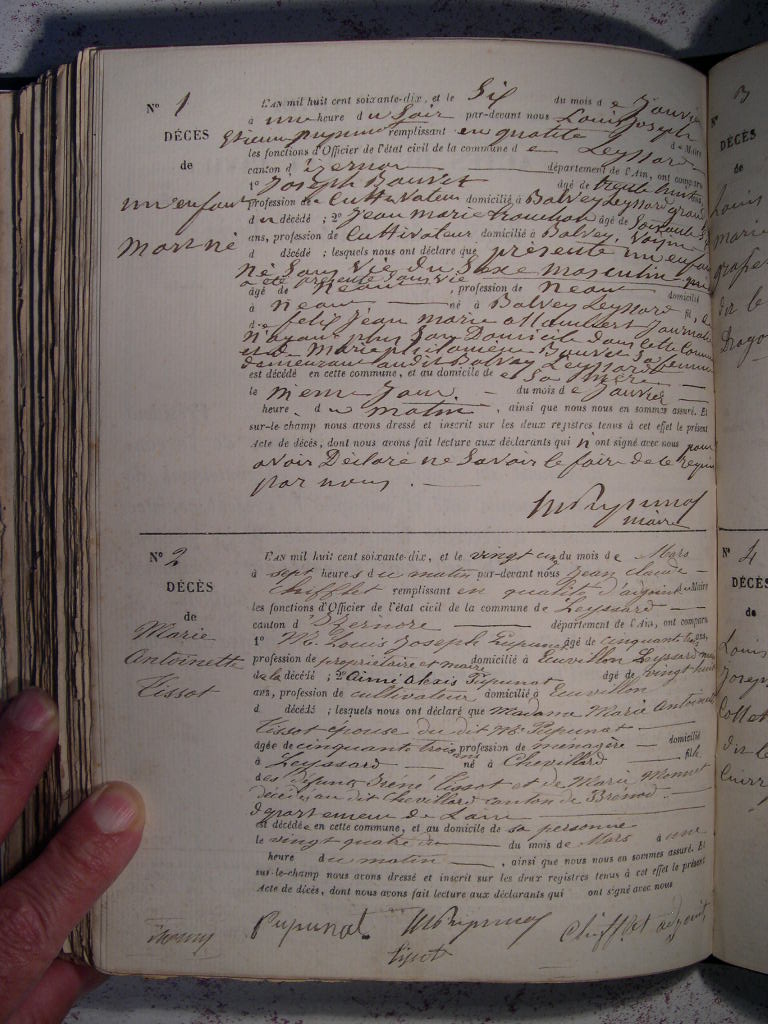 N° 1
DÉCÈS
de
un enfant
mort né
L'AN mil huit cent soixante-dix, et le Six du mois de Janvier
à une heure du Soir par-devant nous Louis Joseph
remplissant en qualité de Maire
les fonctions d'Officier de l'état civil de la commune de Leyssard
canton d'Izernore département de l'Ain, ont comparu
1° Joseph Bouvet âgé de trente huit ans,
profession de Cultivateur domicilié à Balvay Leyssard grand
du décédé ; 2° Jean marie âgé de Soixante
ans, profession de Cultivateur domicilié à Balvay, Voisin
d décédé ; lesquels nous ont déclaré que présenté un enfant
Né Sans vie du Sexe masculin
a été présenté Sans vie
âgé de Neau, profession de Neau domicilié
à Neau né à Balvay Leyssard fil
de felix Jean marie Journalier
N'ayant plus Son Domicile dans cette Commune
et de Marie Bouvet Sa femme
demeurant audit Balvay Leyssard
est décédé en cette commune, et au domicile de Sa mère
le meme Jour du mois de Janvier
heure du matin, ainsi que nous nous en sommes assuré. Et
sur-le-champ nous avons dressé et inscrit sur les deux registres tenus à cet effet le présent
Acte de décès, dont nous avons fait lecture aux déclarants qui n'ont signé avec nous pour
avoir Déclaré ne Savoir le faire de ce requis
par nous.
maire
N° 2
DÉCÈS
de
Marie
Antoinette
Tissot
L'AN mil huit cent soixante-dix, et le vingt cinq du mois de Mars
à sept heures du matin par-devant nous Jean claude
Chifflet remplissant en qualité d'adjoint de Maire
les fonctions d'Officier de l'état civil de la commune de Leyssard
canton d'Izernore département de l'Ain, ont comparu
1° Mr. Louis Joseph Pupunat âgé de cinquante ans,
profession de propriétaire et maire domicilié à Leyssard
de la décédé ; 2° Aimé Alexis Pupunat âgé de vingt huit
ans, profession de cultivateur domicilié à
d décédé ; lesquels nous ont déclaré que Madame Marie Antoinette
Tissot épouse du dit Mr Pupunat
âgée de cinquante trois ans profession de menagère domicilié
à Leyssard né à Chevillard fille
des défunts Tissot et de Marie Monnet
décédés au dit Chevillard canton de Brénod
département de L'ain
est décédée en cette commune, et au domicile de sa personne
le vingt quatre du mois de Mars à une
heure du matin, ainsi que nous nous en sommes assuré. Et
sur-le-champ nous avons dressé et inscrit sur les deux registres tenus à cet effet le présent
Acte de décès, dont nous avons fait lecture aux déclarants qui ont signé avec nous
Pupunat Chifflet adjoint
3
DÉCÈS
de
Louis
marie
dit le
Dragon
N° 4
DÉCÈS
de
Louis
Joseph
Collet
dit le